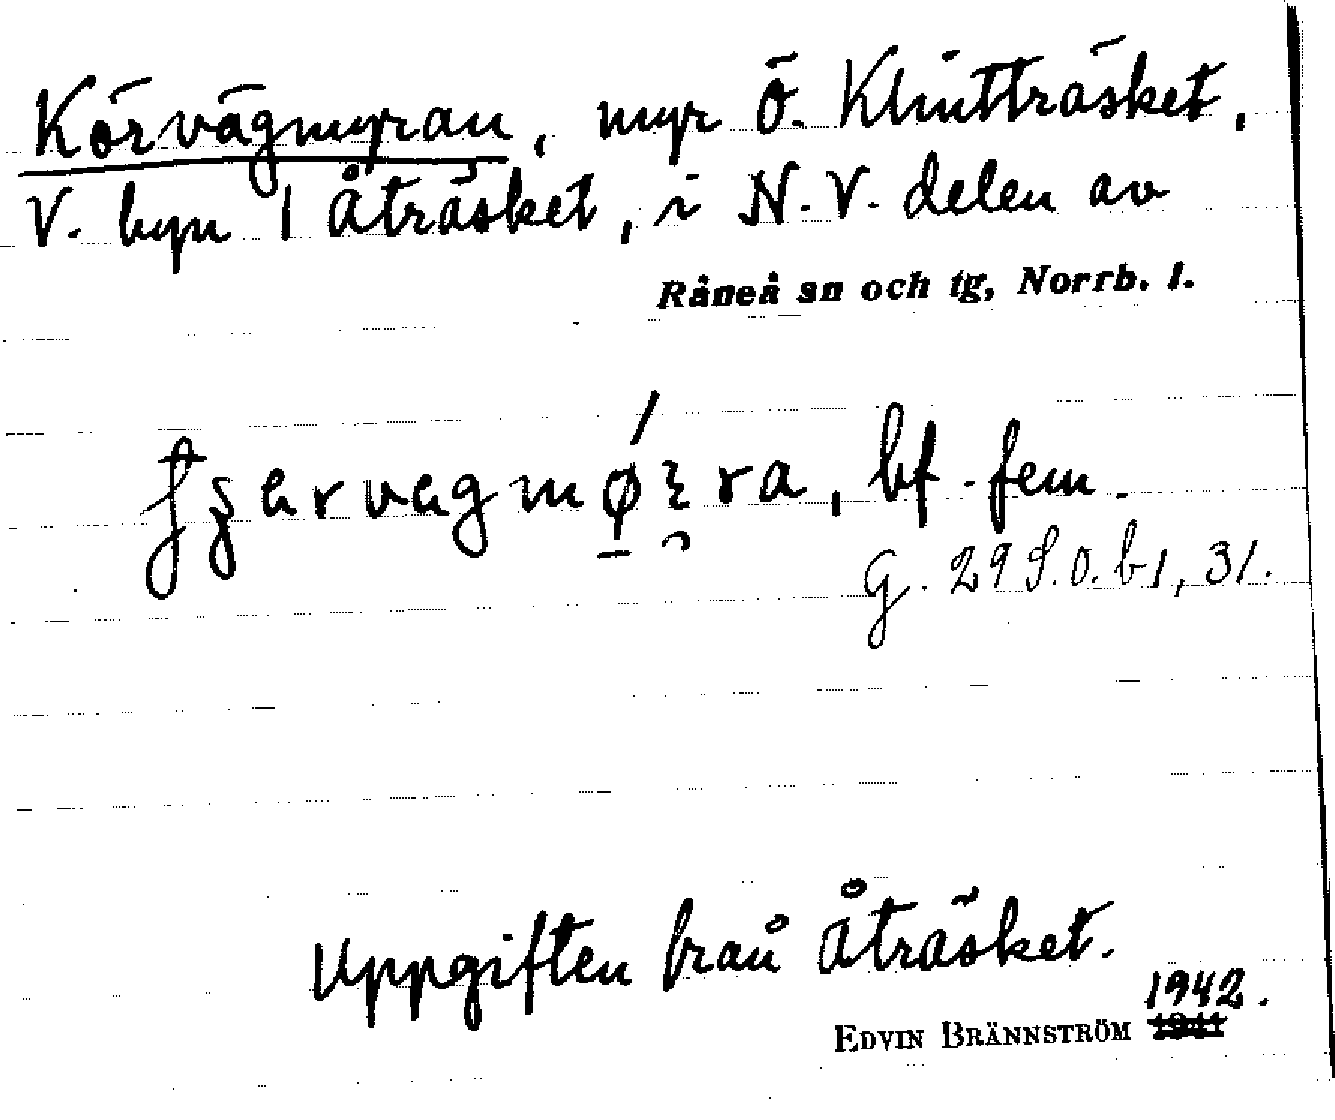 Körvägmyran, myr Ö. Klintträsket,
V. byn 1 Åträsket, i N.V. delen av
Råneå sn och tg, Norrb. l.
bf. fem.
G. 29 S.O. b1, 31.
Uppgiften från Åträsket.
1942.
EDVIN BRÄNNSTRÖM 1941